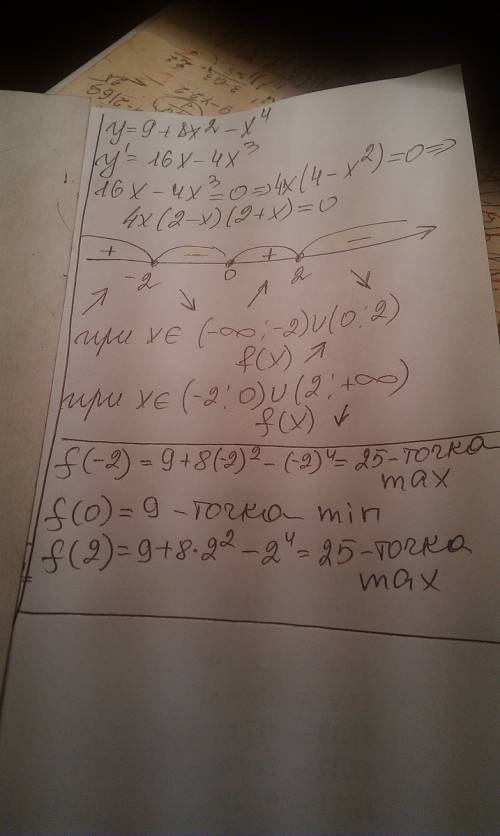 y=9+8x²-x⁴
y'=16x-4x³
16x-4x³=0⇒4x(4-x²)=0⇒
4x(2-x)(2+x)=0
+ − + −
-2 0 2
↗ ↘ ↗ ↘
при x∈(-∞;-2)∪(0;2)
f(x)↗
при x∈(-2;0)∪(2;+∞)
f(x)↓
f(-2)=9+8(-2)²-(-2)⁴=25-точка
max
f(0)=9-точка min
f(2)=9+8·2²-2⁴=25-точка
max